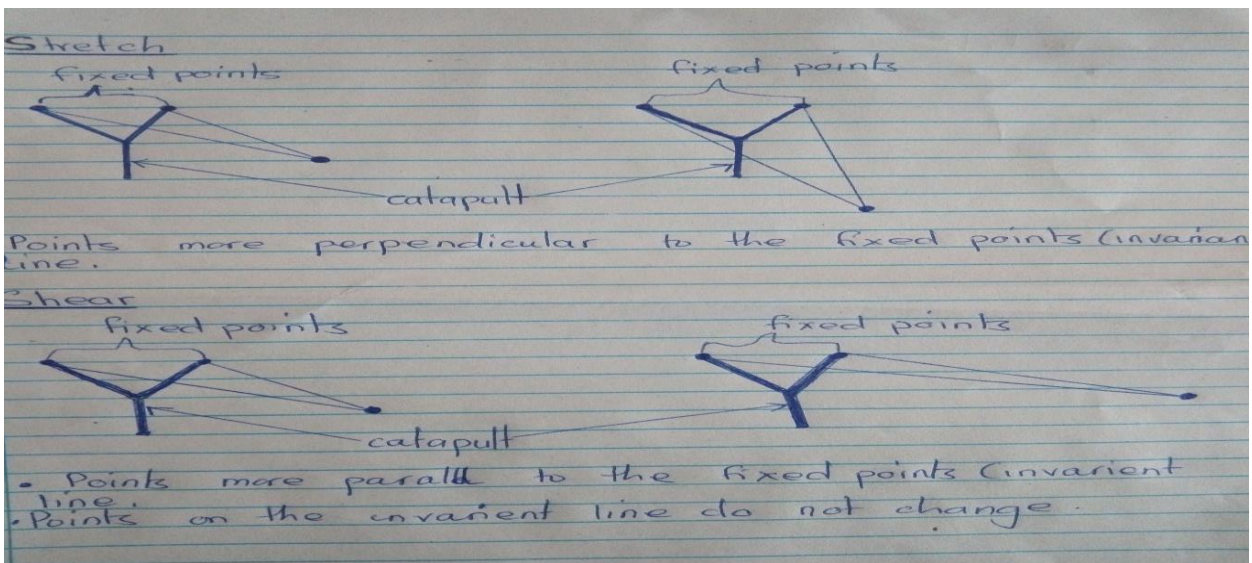 Stretch
fixed points fixed points
catapult
Points more perpendicular to the fixed points (invarian
line.
Shear
fixed points fixed points
catapult
• Points more parallt to the fixed points (invarient
line.
• Points on the invarient line do not change.